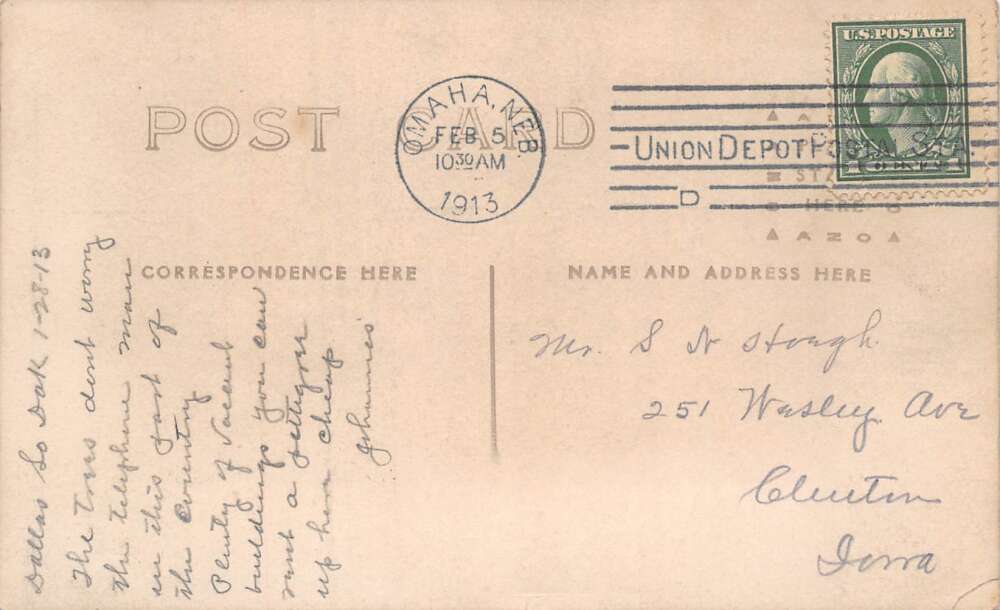 POST CARD
OMAHA, NEB.
FEB 5
10 30 AM
1913
UNION DEPOT POSTAL STA.
D
U.S. POSTAGE
1 CENT 1
STAMP
HERE
AZO
CORRESPONDENCE HERE
NAME AND ADDRESS HERE
Dallas So Dak 1-28-13
The Trees dont worry
the telephone man
in this part of
the Country
Plenty of Vacant
buildings you can
rent a
up here cheap
Johnnie
Mr. S N Hough
251 Wesley Ave
Clinton
Iowa